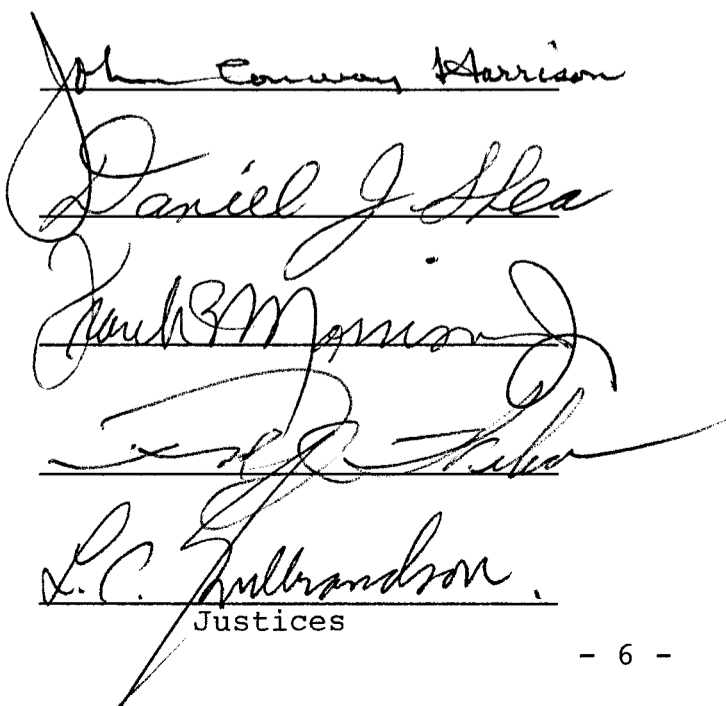 John Conway Harrison
Daniel J. Shea
Frank B Morrison Jr
L. C. Gulbrandson.
Justices
- 6 -